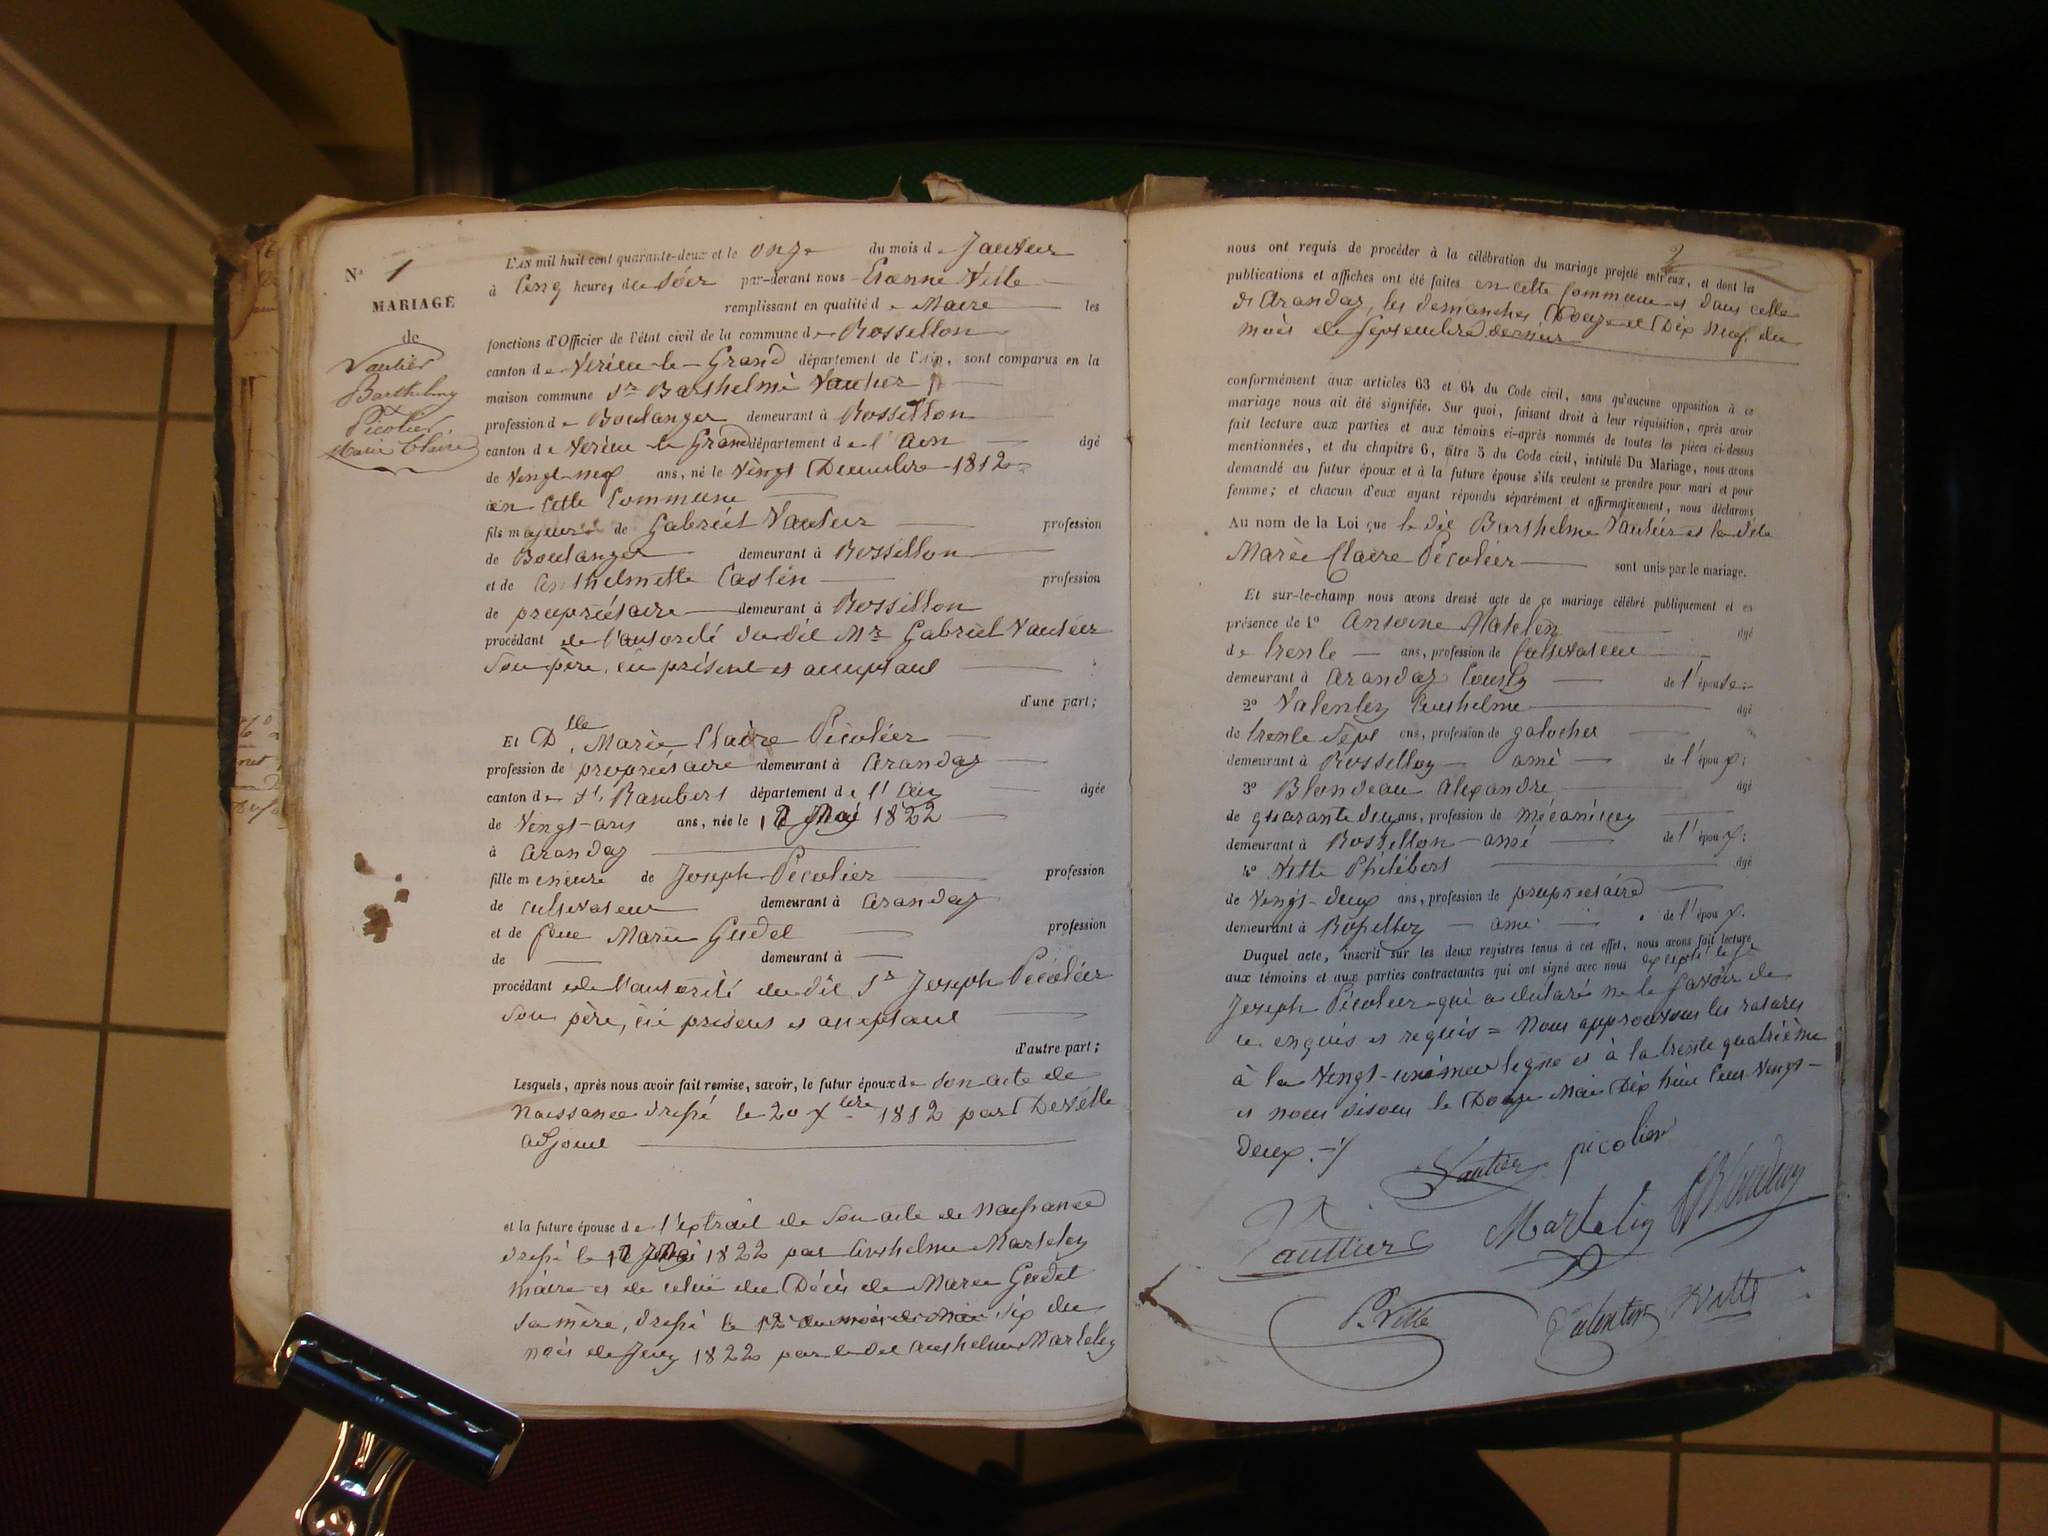 N° 1
MARIAGE
de
Vautier
Barthelmy
Picolier
Marie Claire
L'AN mil huit cent quarante-deux et le onze du mois de Janvier
à Cinq heures du Soir par-devant nous Etienne Vitte
remplissant en qualité de Maire les
fonctions d'Officier de l'état civil de la commune de Rossillon
canton de Virieu le Grand département de l'Ain, sont comparus en la
maison commune Sr Barthelmi Vautier
profession de Boulanger demeurant à Rossillon
canton de Virieu le Grand département de l'Ain âgé
de Vingt-neuf ans, né le Vingt Decembre 1812
en Cette Commune
fils majeur de Gabriel Vautier profession
de Boulanger demeurant à Rossillon
et de Anthelmette Caslin profession
de propriétaire demeurant à Rossillon
procédant de l'autorité du dit Mr Gabriel Vautier
Son père, ici présent et acceptant ;
d'une part;
Et Dlle Marie Claire Picolier
profession de propriétaire demeurant à Arandaz
canton de St Rambert département de l'Ain âgée
de Vingt ans, née le 12 Mai 1822
à Arandaz
fille mineure de Joseph Picolier profession
de cultivateur demeurant à Arandaz
et de feue Marie Gudel profession
de demeurant à
procédant de l'autorité du dit Sr Joseph Picolier
Son père, ici présent et acceptant
d'autre part;
Lesquels, après nous avoir fait remise, savoir, le futur époux de Son acte de
Naissance dressé le 20 Xbre 1812 par
adjoint
et la future épouse de l'extrait de Son acte de Naissance
dressé le 12 Mai 1822 par Anthelme Martelin
maire et de celui du Décès de Marie Gudel
Sa mère, dressé le 12 du mois de Mai dix du
mois de Juin 1822 par le dit Anthelme Martelin
2
nous ont requis de procéder à la célébration du mariage projeté entr'eux, et dont les
publications et affiches ont été faites en cette Commune et dans celle
d'Arandaz, les demanches Douze et Dix Neuf du
mois de Septembre dernier
conformément aux articles 63 et 64 du Code civil, sans qu'aucune opposition à ce
mariage nous ait été signifiée. Sur quoi, faisant droit à leur réquisition, après avoir
fait lecture aux parties et aux témoins ci-après nommés de toutes les pièces ci-dessus
mentionnées, et du chapitre 6, titre 5 du Code civil, intitulé Du Mariage, nous avons
demandé au futur époux et à la future épouse s'ils veulent se prendre pour mari et pour
femme; et chacun d'eux ayant répondu séparément et affirmativement, nous déclarons
Au nom de la Loi que le dit Barthelme Vautier et la dite
Marie Claire Picolier sont unis par le mariage.
Et sur-le-champ nous avons dressé acte de ce mariage célébré publiquement et en
présence de 1° Antoine Matelin âgé
de trente ans, profession de Cultivateur
demeurant à Arandaz Cousin de l'épouse
2° Valentin Anthelme âgé
de trente Sept ans, profession de galocher
demeurant à Rossillon ami de l'époux;
3° Blondeau Alexandre âgé
de quarante deux ans, profession de mécanicien
demeurant à Rossillon ami de l'époux;
4° Vitte Philibert âgé
de Vingt-deux ans, profession de propriétaire
demeurant à Rossillon ami de l'époux.
Duquel acte, inscrit sur les deux registres tenus à cet effet, nous avons fait lecture
aux témoins et aux parties contractantes qui ont signé avec nous excepté le Sr
Joseph Picolier qui a déclaré ne le Savoir de
ce enquis et requis = Nous approuvons les ratures
à la Vingt-unième ligne et à la trente quatrième
et nous disons le Douze Mai Dix huit Cent Vingt-
deux.
Vautier picolier
Vauttier Martelin Blondeau
P. Vitte Valentin Vitte